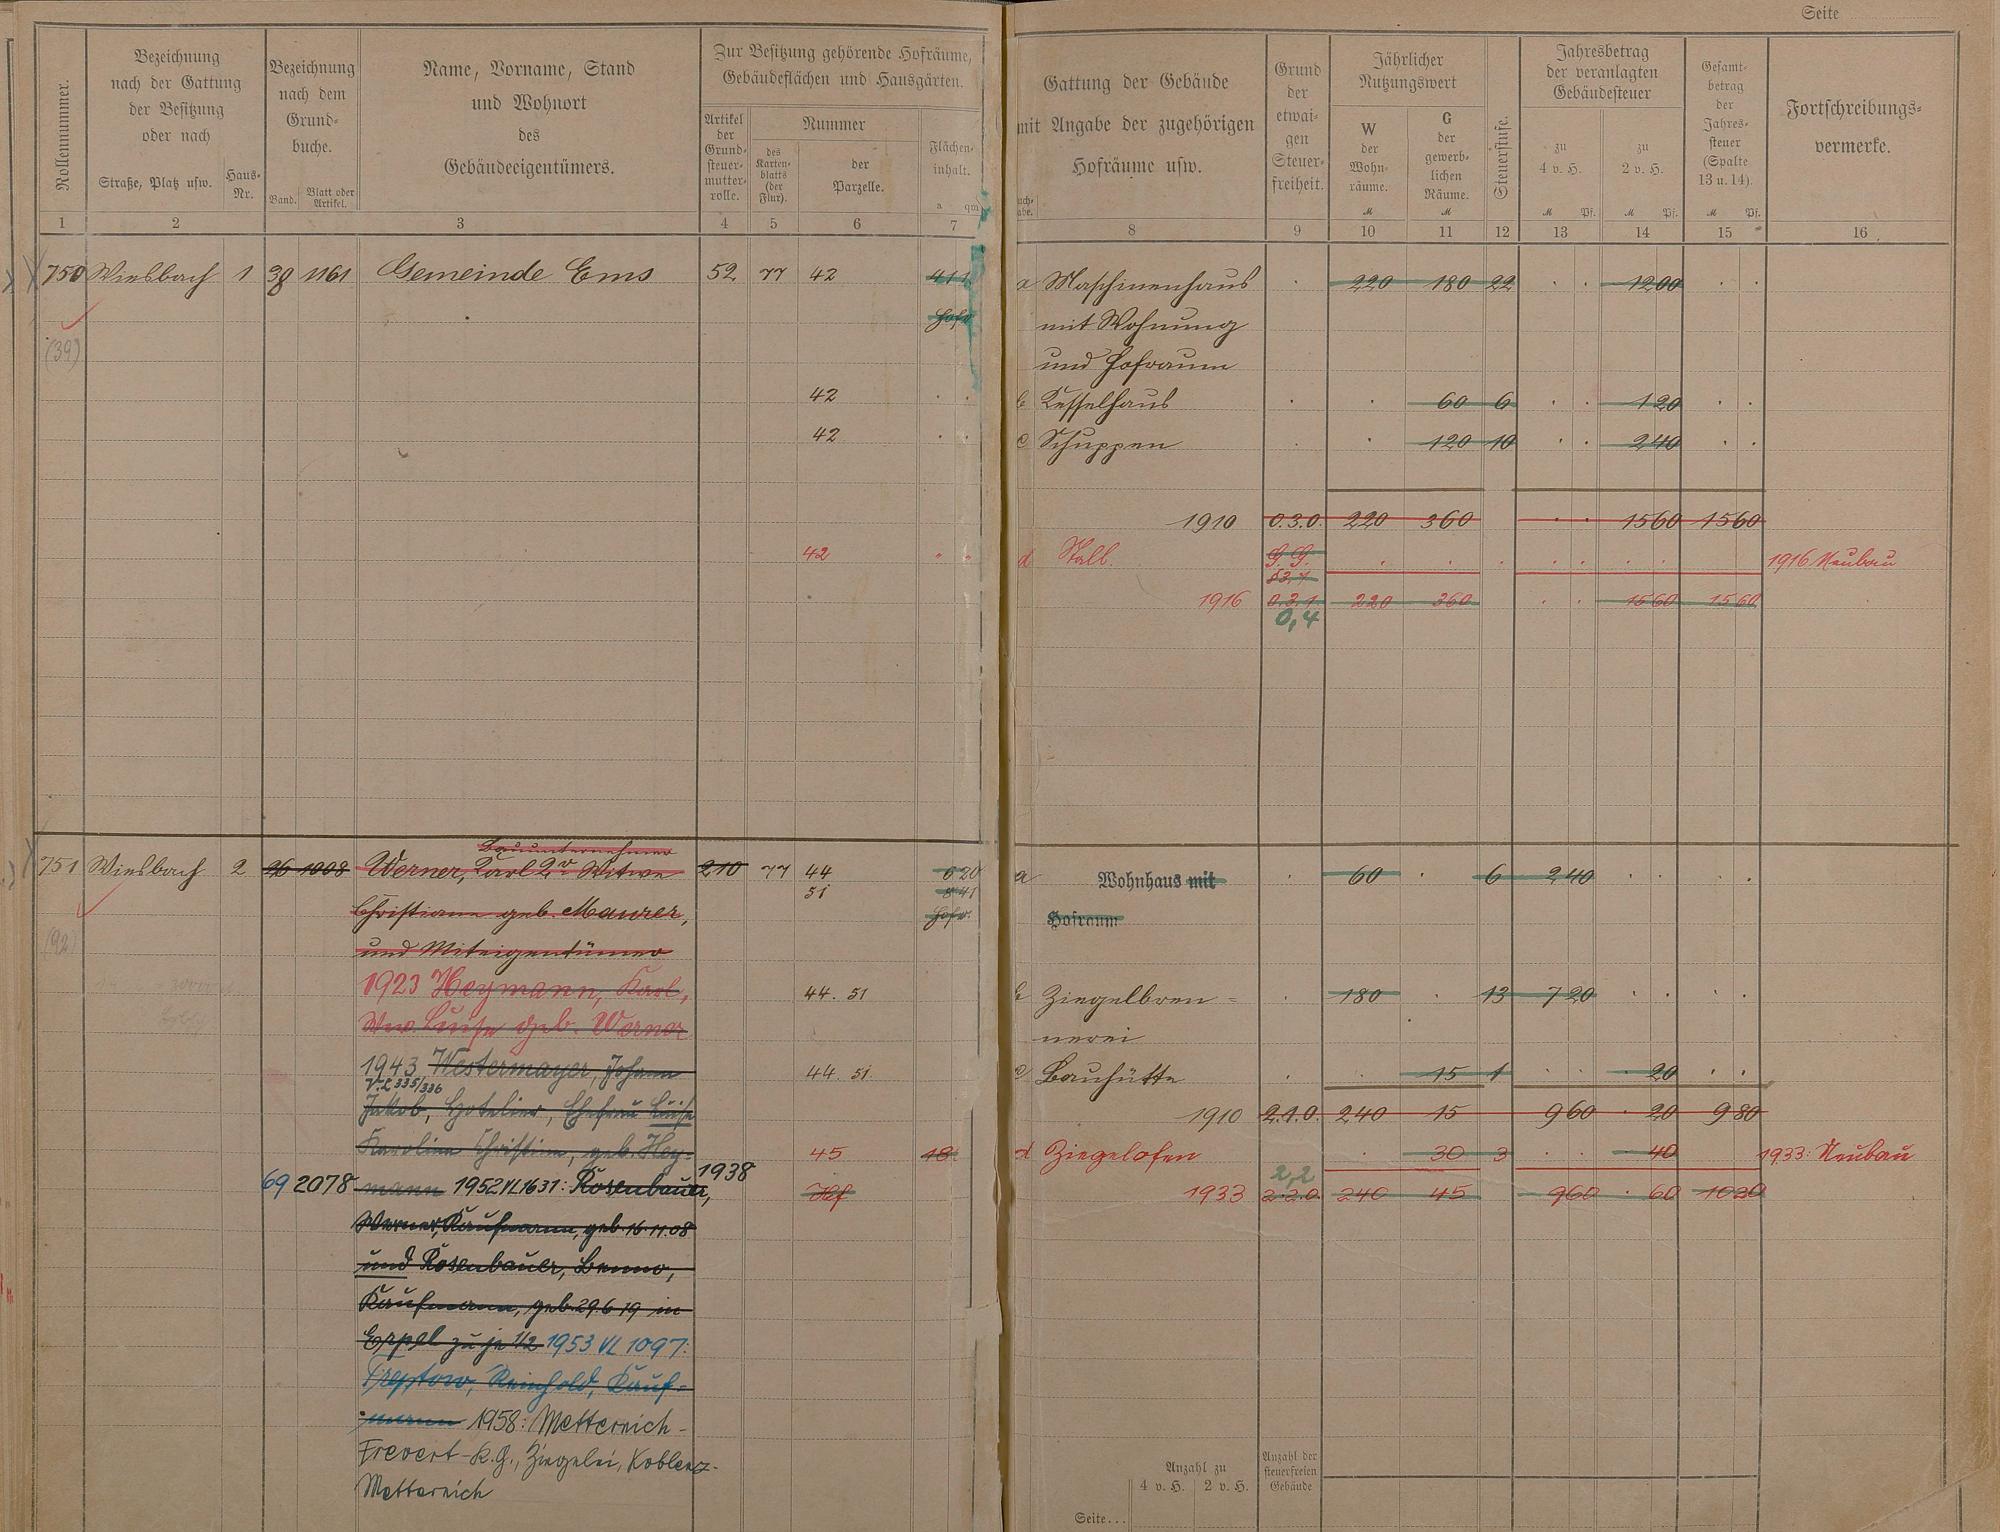 Rollennummer.
Bezeichnung
nach der Gattung
der Besitzung
oder nach
Straße, Platz usw.
Haus-
Nr.
Bezeichnung
nach dem
Grund-
buche.
Band.
Blatt oder
Artikel.
Name, Vorname, Stand
und Wohnort
des
Gebäudeeigentümers.
Zur Besitzung gehörende Hofräume,
Gebäudeflächen und Hausgärten.
Artikel
der
Grund-
steuer-
mutter-
rolle.
Nummer
des
Karten-
blatts
(der
Flur).
der
Parzelle.
Flächen-
inhalt.
a qm
1 2 3 4 5 6 7
750 Wiesbach 1 38 1161 Gemeinde Ems 52 77 42 411
Hofr
(39)
42 . .
42 . .
42 " "
Bauunternehmer
751 Wiesbach 2 26 1008 Werner, Karl 2r Witwe 210 77 44 620
51 841
Christiane geb. Maurer, Hofr.
(92) und Miteigentümer
1923 Heymann, Karl, 44. 51
Wwe. Luise geb. Werner
1943 Westermayer, Johann 44. 51
V.L 335/336
Jakob, Hotelier, Ehefrau Luise
Karoline Christine, geb. Hey- 45 18
69 2078 mann 1952 VL 1631: Rosenbauer, 1938 Hf
Werner, Kaufmann, geb. 16.11.08
und Rosenbauer, Benno,
Kaufmann, geb. 29.6.19 in
Erpel zu je 1/2 1953 VL 1097:
Treptow, Reinhold, Kauf-
mann 1958: Metternich-
Frevert-K.G., Ziegelei, Koblenz-
Metternich
Seite
Gattung der Gebäude
mit Angabe der zugehörigen
Hofräume usw.
Grund
der
etwai-
gen
Steuer-
freiheit.
Jährlicher
Nutzungswert
W
der
Wohn-
räume.
M
G
der
gewerb-
lichen
Räume.
M
Steuerstufe.
Jahresbetrag
der veranlagten
Gebäudesteuer
zu
4 v. H.
M Pf.
zu
2 v. H.
M Pf.
Gesamt-
betrag
der
Jahres-
steuer
(Spalte
13 u. 14).
M Pf.
Fortschreibungs-
vermerke.
8 9 10 11 12 13 14 15 16
a Maschinenhaus . 220 180 22 . . 1200 . .
mit Wohnung
und Hofraum
b Kesselhaus . . 60 6 . . 120 . .
c Schuppen . . 120 10 . . 240 . .
1910 0.3.0. 220 360 . . 1560 1560
d Stall. G.G. . . . . . . . 1916 Neubau
§3,7
1916 0.3.1. 220 360 . . 1560 1560
0,4
a Wohnhaus mit . 60 . 6 240 . . . .
Hofraum
b Ziegelbren= . 180 . 13 720 . . . .
nerei
c Bauhütte . . 15 1 . . 20 . .
1910 2.1.0. 240 15 960 . 20 980
d Ziegelofen . 30 3 . . 40 1933: Neubau
2,2
1933 2.2.0. 240 45 960 . 60 1020
Anzahl zu
4 v. H. 2 v. H.
Anzahl der
steuerfreien
Gebäude
Seite...